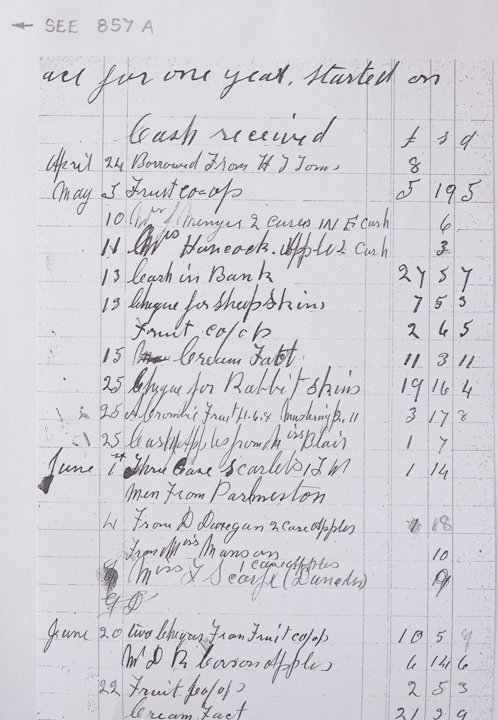 ← SEE 857 A
acc for one year, started on
Cash received £ s d
April 24 Borrowed From H J Toms 8
May 5 Fruit co op 5 19 5
10 2 cases IN E cash 6
11 Hancock. apple 2 cash 3
13 Cash in Bank 27 5 7
13 Cheque for sheep skins 7 5 3
Fruit co/op 2 6 5
15 Cream Fact 11 3 11
25 Cheque for Rabbit skins 19 16 4
25 Fruit 11.6.8 3 17 8
25 Cash apples from Miss Blair 1 7
June 1st Three Case Scarlets
1 14
Men From Parlmerston
4 From D Dunegan 2 case apples 1 18
From Mrs Manson 10
case apples
Miss (Dunedin) 9
9
June 20 two cheques From Fruit co/op 10 5 9
Mr D R Corson apples 6 14 6
22 Fruit co/op 2 5 3
Cream Fact 21 3 9